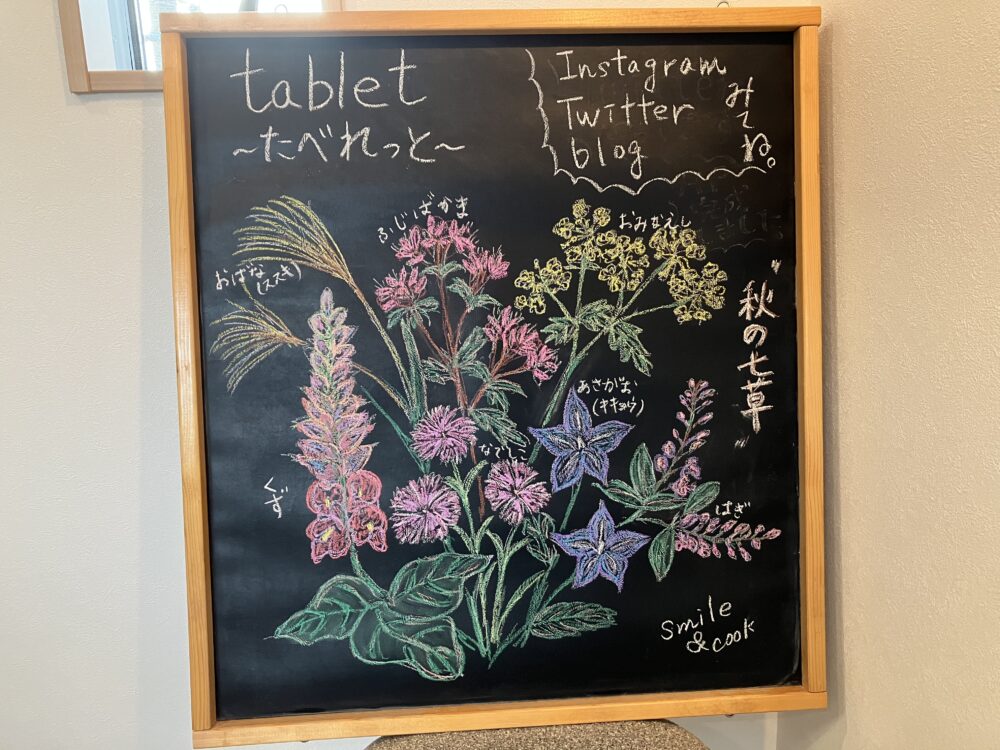 tablet
~たべれっと~
Instagram
Twitter
blog
みてね。
"秋の七草"
ふじばかま
おみなえし
おばな
(ススキ)
あさがお
(キキョウ)
なでしこ
くず
はぎ
smile
& cook